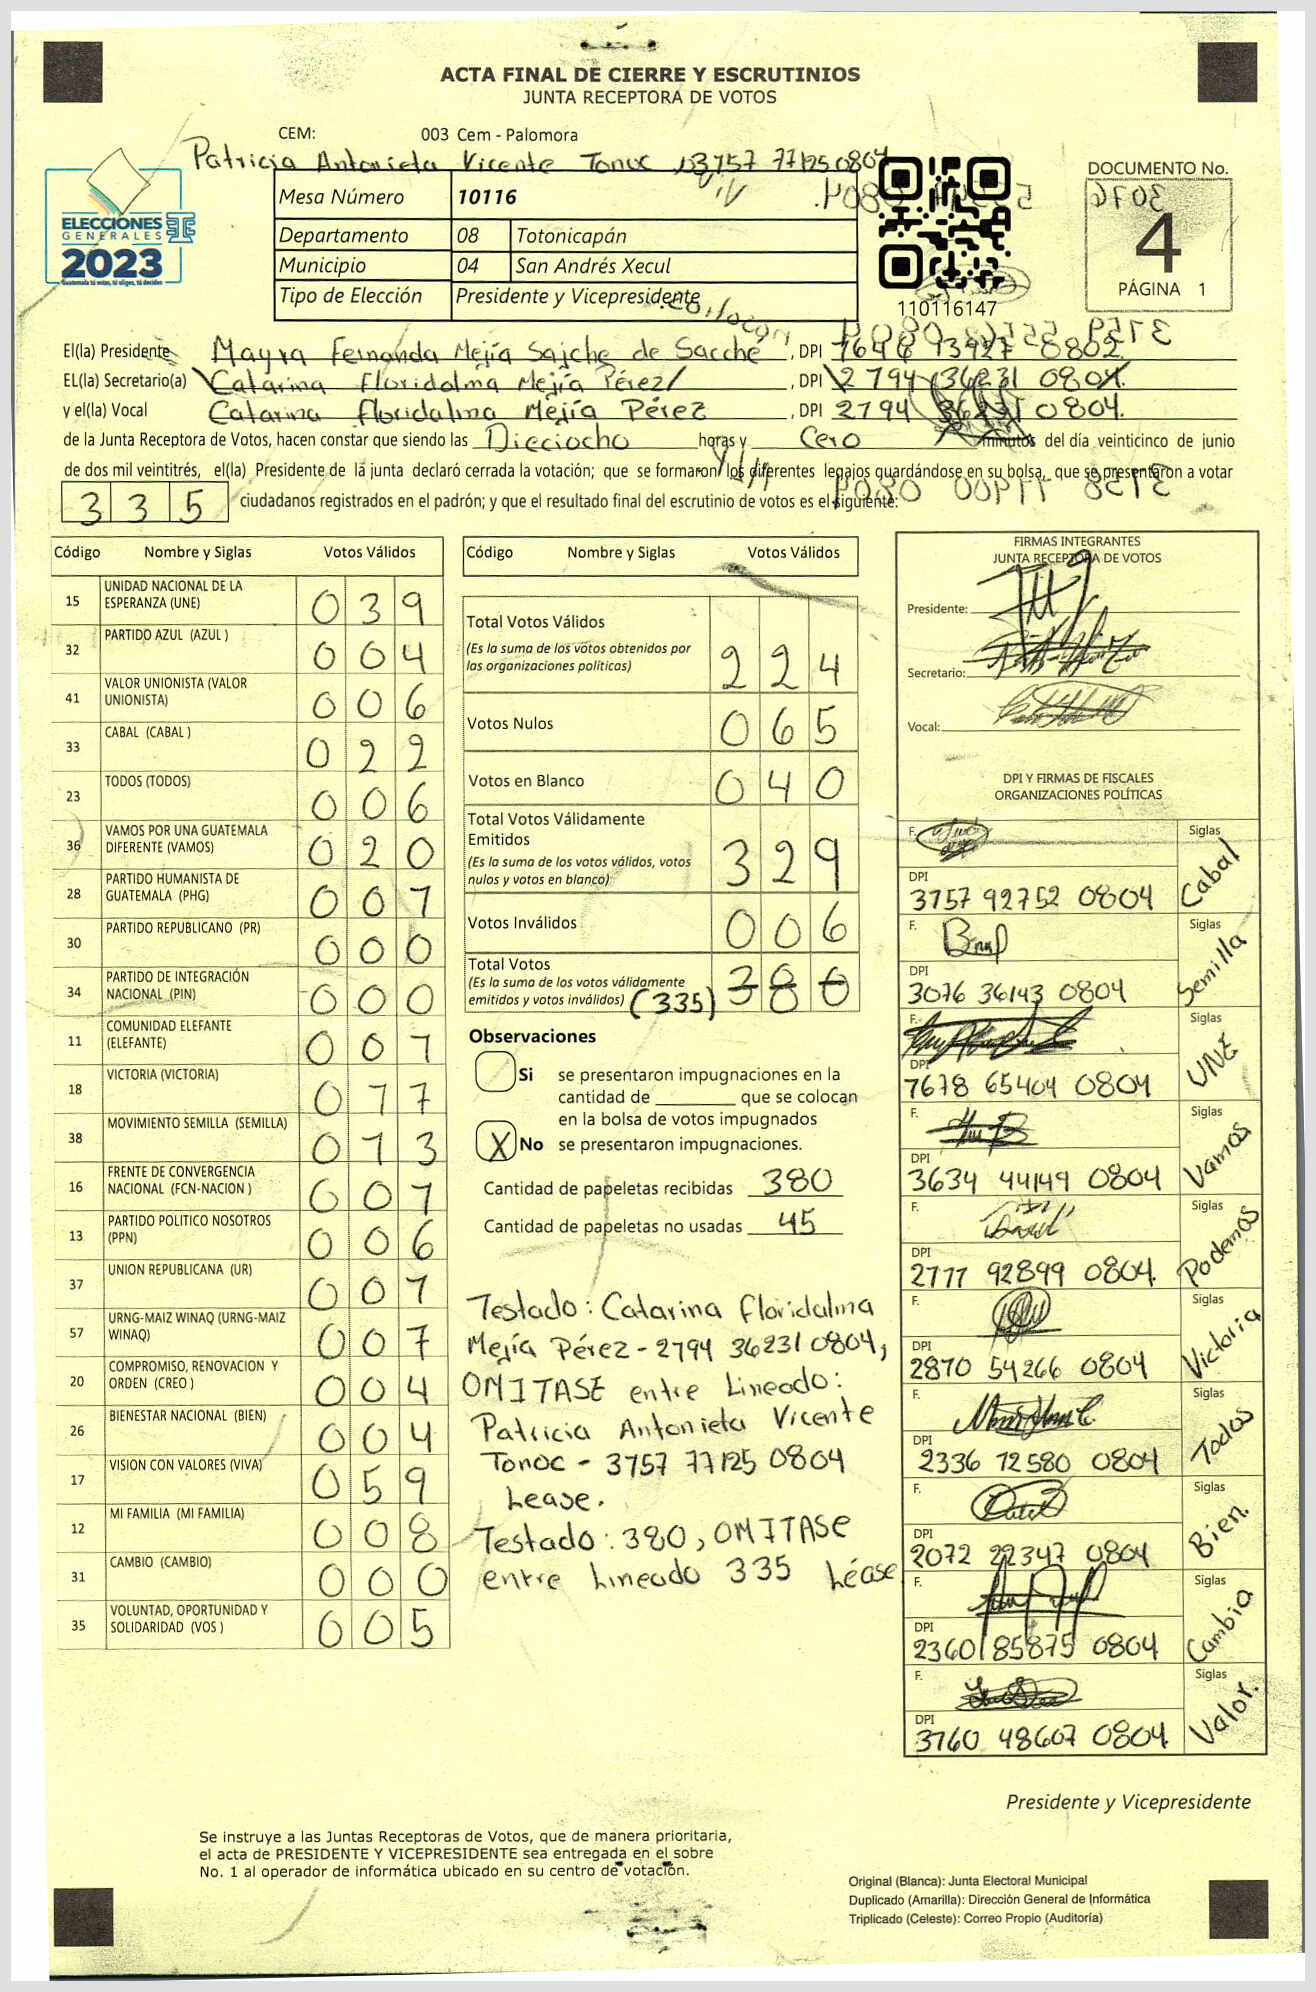 ACTA FINAL DE CIERRE Y ESCRUTINIOS
JUNTA RECEPTORA DE VOTOS
CEM: 003 Cem - Palomora
Patricia Antonieta Vicente Tonoc 3757 77125 0804
ELECCIONES
GENERALES
2023
Guatemala tú votas, tú eliges, tú decides
Mesa Número 10116
Departamento 08 Totonicapán
Municipio 04 San Andrés Xecul
Tipo de Elección Presidente y Vicepresidente
110116147
DOCUMENTO No.
4
PÁGINA 1
El(la) Presidente Mayra Fernanda Mejía Sajche de Sacché, DPI 7648 13927 0802
EL(la) Secretario(a) Catarina Floridalma Mejía Pérez, DPI 2794 36231 0804.
y el(la) Vocal Catarina Floridalma Mejía Pérez, DPI 2794 36231 0804.
de la Junta Receptora de Votos, hacen constar que siendo las Dieciocho horas y Cero minutos del día veinticinco de junio
de dos mil veintitrés, el(la) Presidente de la junta declaró cerrada la votación; que se formaron los diferentes legajos guardándose en su bolsa, que se presentaron a votar
335 ciudadanos registrados en el padrón; y que el resultado final del escrutinio de votos es el siguiente:
Código Nombre y Siglas Votos Válidos
15 UNIDAD NACIONAL DE LA ESPERANZA (UNE) 039
32 PARTIDO AZUL (AZUL ) 004
41 VALOR UNIONISTA (VALOR UNIONISTA) 006
33 CABAL (CABAL ) 022
23 TODOS (TODOS) 006
36 VAMOS POR UNA GUATEMALA DIFERENTE (VAMOS) 020
28 PARTIDO HUMANISTA DE GUATEMALA (PHG) 007
30 PARTIDO REPUBLICANO (PR) 000
34 PARTIDO DE INTEGRACIÓN NACIONAL (PIN) 000
11 COMUNIDAD ELEFANTE (ELEFANTE) 007
18 VICTORIA (VICTORIA) 077
38 MOVIMIENTO SEMILLA (SEMILLA) 013
16 FRENTE DE CONVERGENCIA NACIONAL (FCN-NACION ) 007
13 PARTIDO POLITICO NOSOTROS (PPN) 006
37 UNION REPUBLICANA (UR) 007
57 URNG-MAIZ WINAQ (URNG-MAIZ WINAQ) 007
20 COMPROMISO, RENOVACION Y ORDEN (CREO ) 004
26 BIENESTAR NACIONAL (BIEN) 004
17 VISION CON VALORES (VIVA) 059
12 MI FAMILIA (MI FAMILIA) 008
31 CAMBIO (CAMBIO) 000
35 VOLUNTAD, OPORTUNIDAD Y SOLIDARIDAD (VOS ) 005
Código Nombre y Siglas Votos Válidos
Total Votos Válidos
(Es la suma de los votos obtenidos por las organizaciones políticas) 224
Votos Nulos 065
Votos en Blanco 040
Total Votos Válidamente Emitidos
(Es la suma de los votos válidos, votos nulos y votos en blanco) 329
Votos Inválidos 006
Total Votos
(Es la suma de los votos válidamente emitidos y votos inválidos) (335) 380
Observaciones
Si se presentaron impugnaciones en la
cantidad de ________ que se colocan
en la bolsa de votos impugnados
X No se presentaron impugnaciones.
Cantidad de papeletas recibidas 380
Cantidad de papeletas no usadas 45
Testado: Catarina Floridalma
Mejía Pérez - 2794 36231 0804,
OMITASE entre Lineado:
Patricia Antonieta Vicente
Tonoc - 3757 77125 0804
Lease.
Testado: 380, OMITASE
entre Lineado 335 Léase
FIRMAS INTEGRANTES
JUNTA RECEPTORA DE VOTOS
Presidente:
Secretario:
Vocal:
DPI Y FIRMAS DE FISCALES
ORGANIZACIONES POLÍTICAS
F. Siglas Cabal
DPI 3757 92752 0804
F. Siglas Semilla
DPI 3076 36143 0804
F. Siglas UNE
DPI 7678 65404 0804
F. Siglas Vamos
DPI 3634 44149 0804
F. Siglas Podemos
DPI 2777 92899 0804.
F. Siglas Victoria
DPI 2870 54266 0804
F. Siglas Todos
DPI 2336 72580 0804
F. Siglas Bien.
DPI 2072 22347 0804
F. Siglas Cambia
DPI 2360 85875 0804
F. Siglas Valor.
DPI 3760 48607 0804
Presidente y Vicepresidente
Se instruye a las Juntas Receptoras de Votos, que de manera prioritaria,
el acta de PRESIDENTE Y VICEPRESIDENTE sea entregada en el sobre
No. 1 al operador de informática ubicado en su centro de votación.
Original (Blanca): Junta Electoral Municipal
Duplicado (Amarilla): Dirección General de Informática
Triplicado (Celeste): Correo Propio (Auditoría)